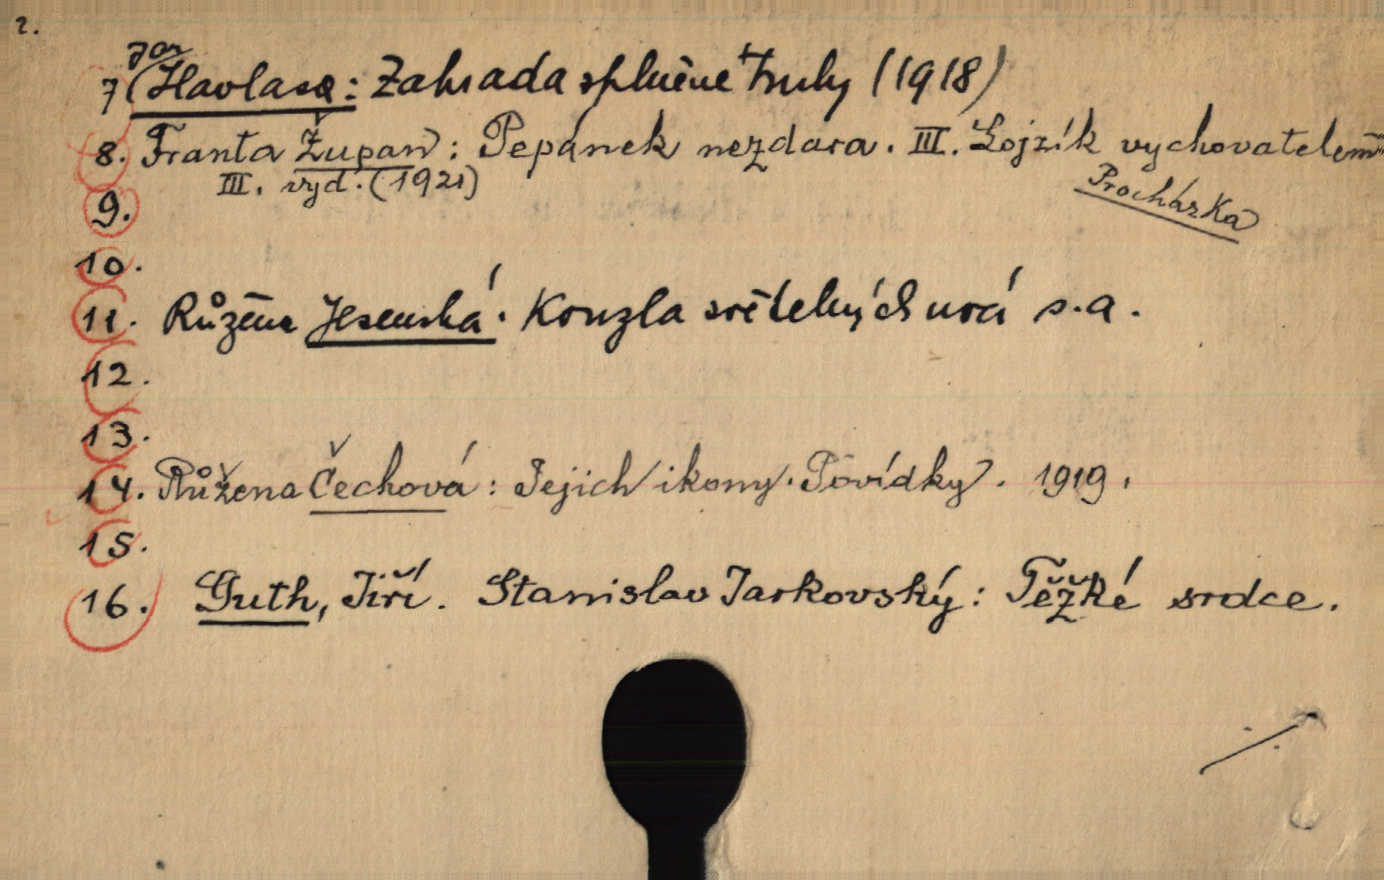 2.
Jar
7 (Havlasa: Zahrada splněné touhy (1918)
8. Franta Župan: Pepánek nezdara. III. Lojzík vychovatelem
III. vyd. (1921)
Procházka
9.
10.
11. Růžena Jesenská: Kouzla světelných
s.a.
12.
13.
14. Růžena Čechová: Jejich ikony. Povídky. 1919.
15.
16. Guth, Jiří. Stanislav Jarkovský: Těžké srdce.